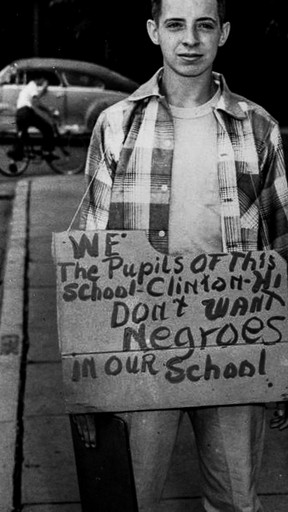 WE
The Pupils OF This
School-Clinton-Hi
DON'T WANT
Negroes
IN OUR School